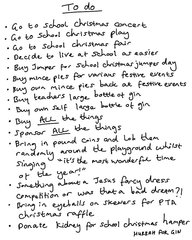 To do
• Go to School christmas concert
• Go to School christmas play
• Go to School christmas fair
• Decide to live at school as easier
• Buy Jumper for School christmas jumper day
• Buy mince pies for various festive events
• Buy own mince pies back at festive events
• Buy teachers large bottle of gin
• Buy own self large bottle of gin
• Buy ALL the things
• Sponsor ALL the things
• Bring in pound coins and lob them
randomly around the playground whilst
singing "it's the most wonderful time
of the year!"
• Something about a Jesus fancy dress
competition or was that a bad dream?!
• Bring in eyeballs on skewers for PTA
christmas raffle
• Donate kidney for school christmas hamper
HURRAH FOR GIN